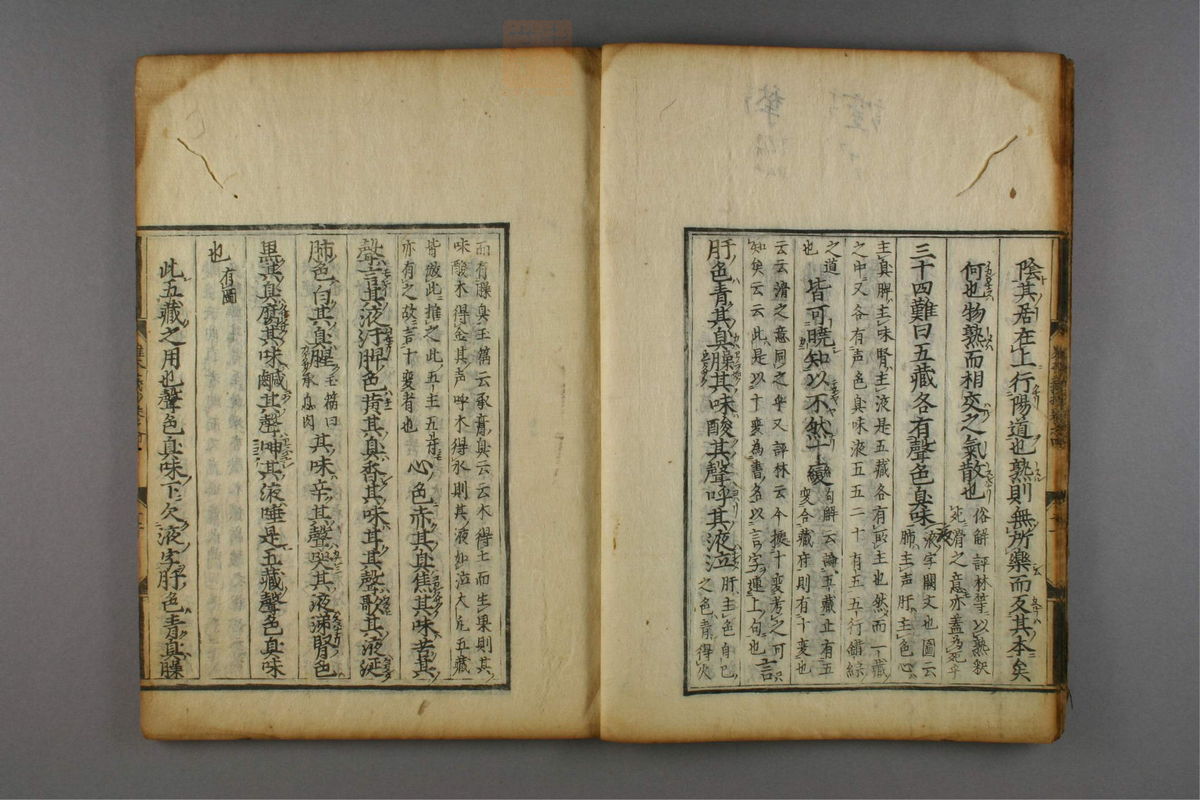 陰其居在上行陽道也熟則無所樂而反其本矣
何也物熟而相交之氣散也
俗解評林等以熟釈
死滑之意亦蓋為死乎
三十四難曰五藏各有聲色臭味
液字闕文也圖云
肺主声肝主色心
主臭脾主味腎主液是五藏各有所主也然而一藏
之中又各有声色臭味液五五二十有五五行錯綜
之道
也
皆可曉知以不然十變
句解云論五藏止有五
変合藏府則有十変也
云云滑之意同之乎又評林云今按十変考之可
知矣云云此是以十変為書名以言字連上句也
言
肝色青其臭臊其味酸其聲呼其液泣
肝主色自已
之色青得火
而有臊臭王篇云承膏臭云云木得土而生果則其
味酸木得金其声呼木得水則其液如泣大凡五藏
皆倣此推之此五主五
亦有之故言十変者也
心色赤其臭焦其味苦其
聲言其液汗脾色黄其臭香其味甘其聲歌其液涎
肺色白其臭腥
玉篇曰
承息肉
其味辛其聲哭其液涕腎色
黒其臭腐其味鹹其聲呻其液唾是五藏聲色臭味
也
有圖
此五藏之用也聲色臭味下欠液字肝色青臭臊